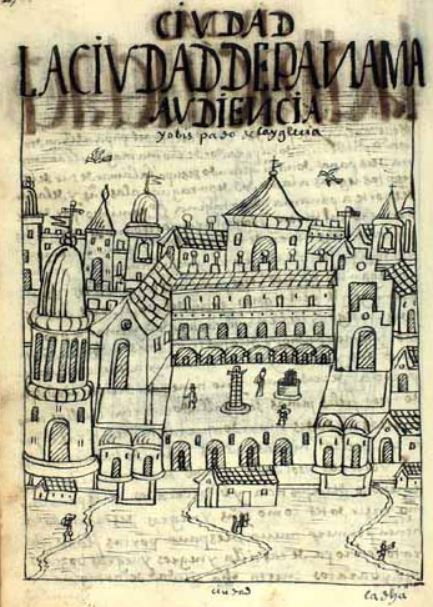 CIVDAD
LACIVDADDEPANAMA
AVDIENCIA
y obispado de la yglecia
ciudad
la dha